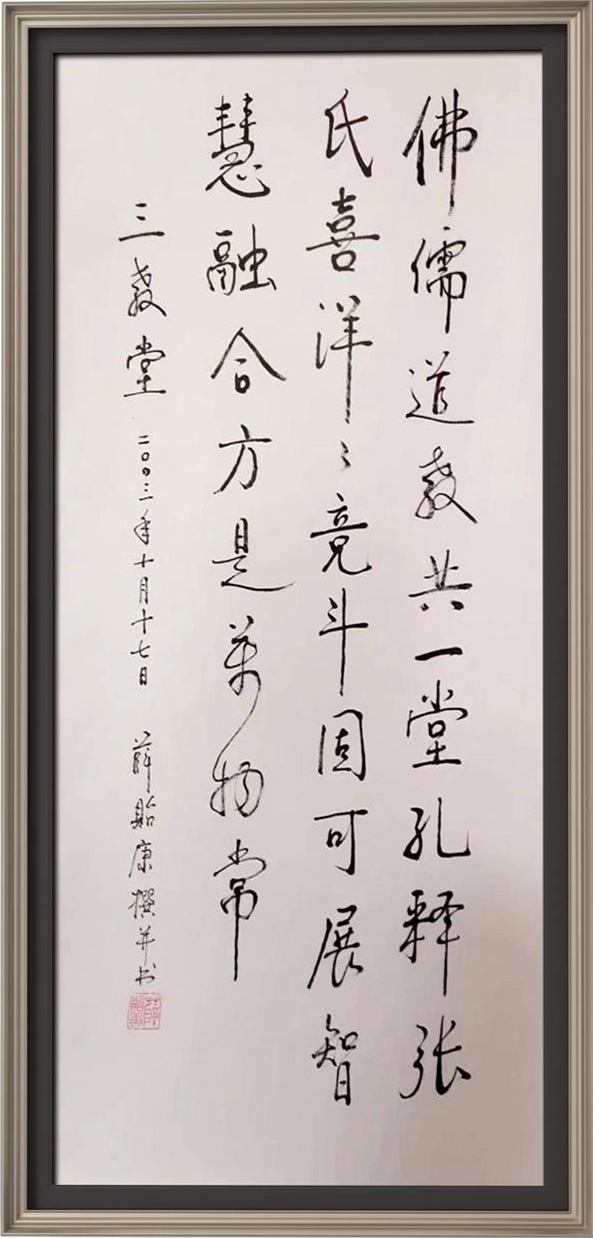 佛儒道教共一堂孔释张
氏喜洋〻竞斗固可展智
慧融合方是万物常
三教堂 二〇〇三年十月十七日 薛贻康撰并书